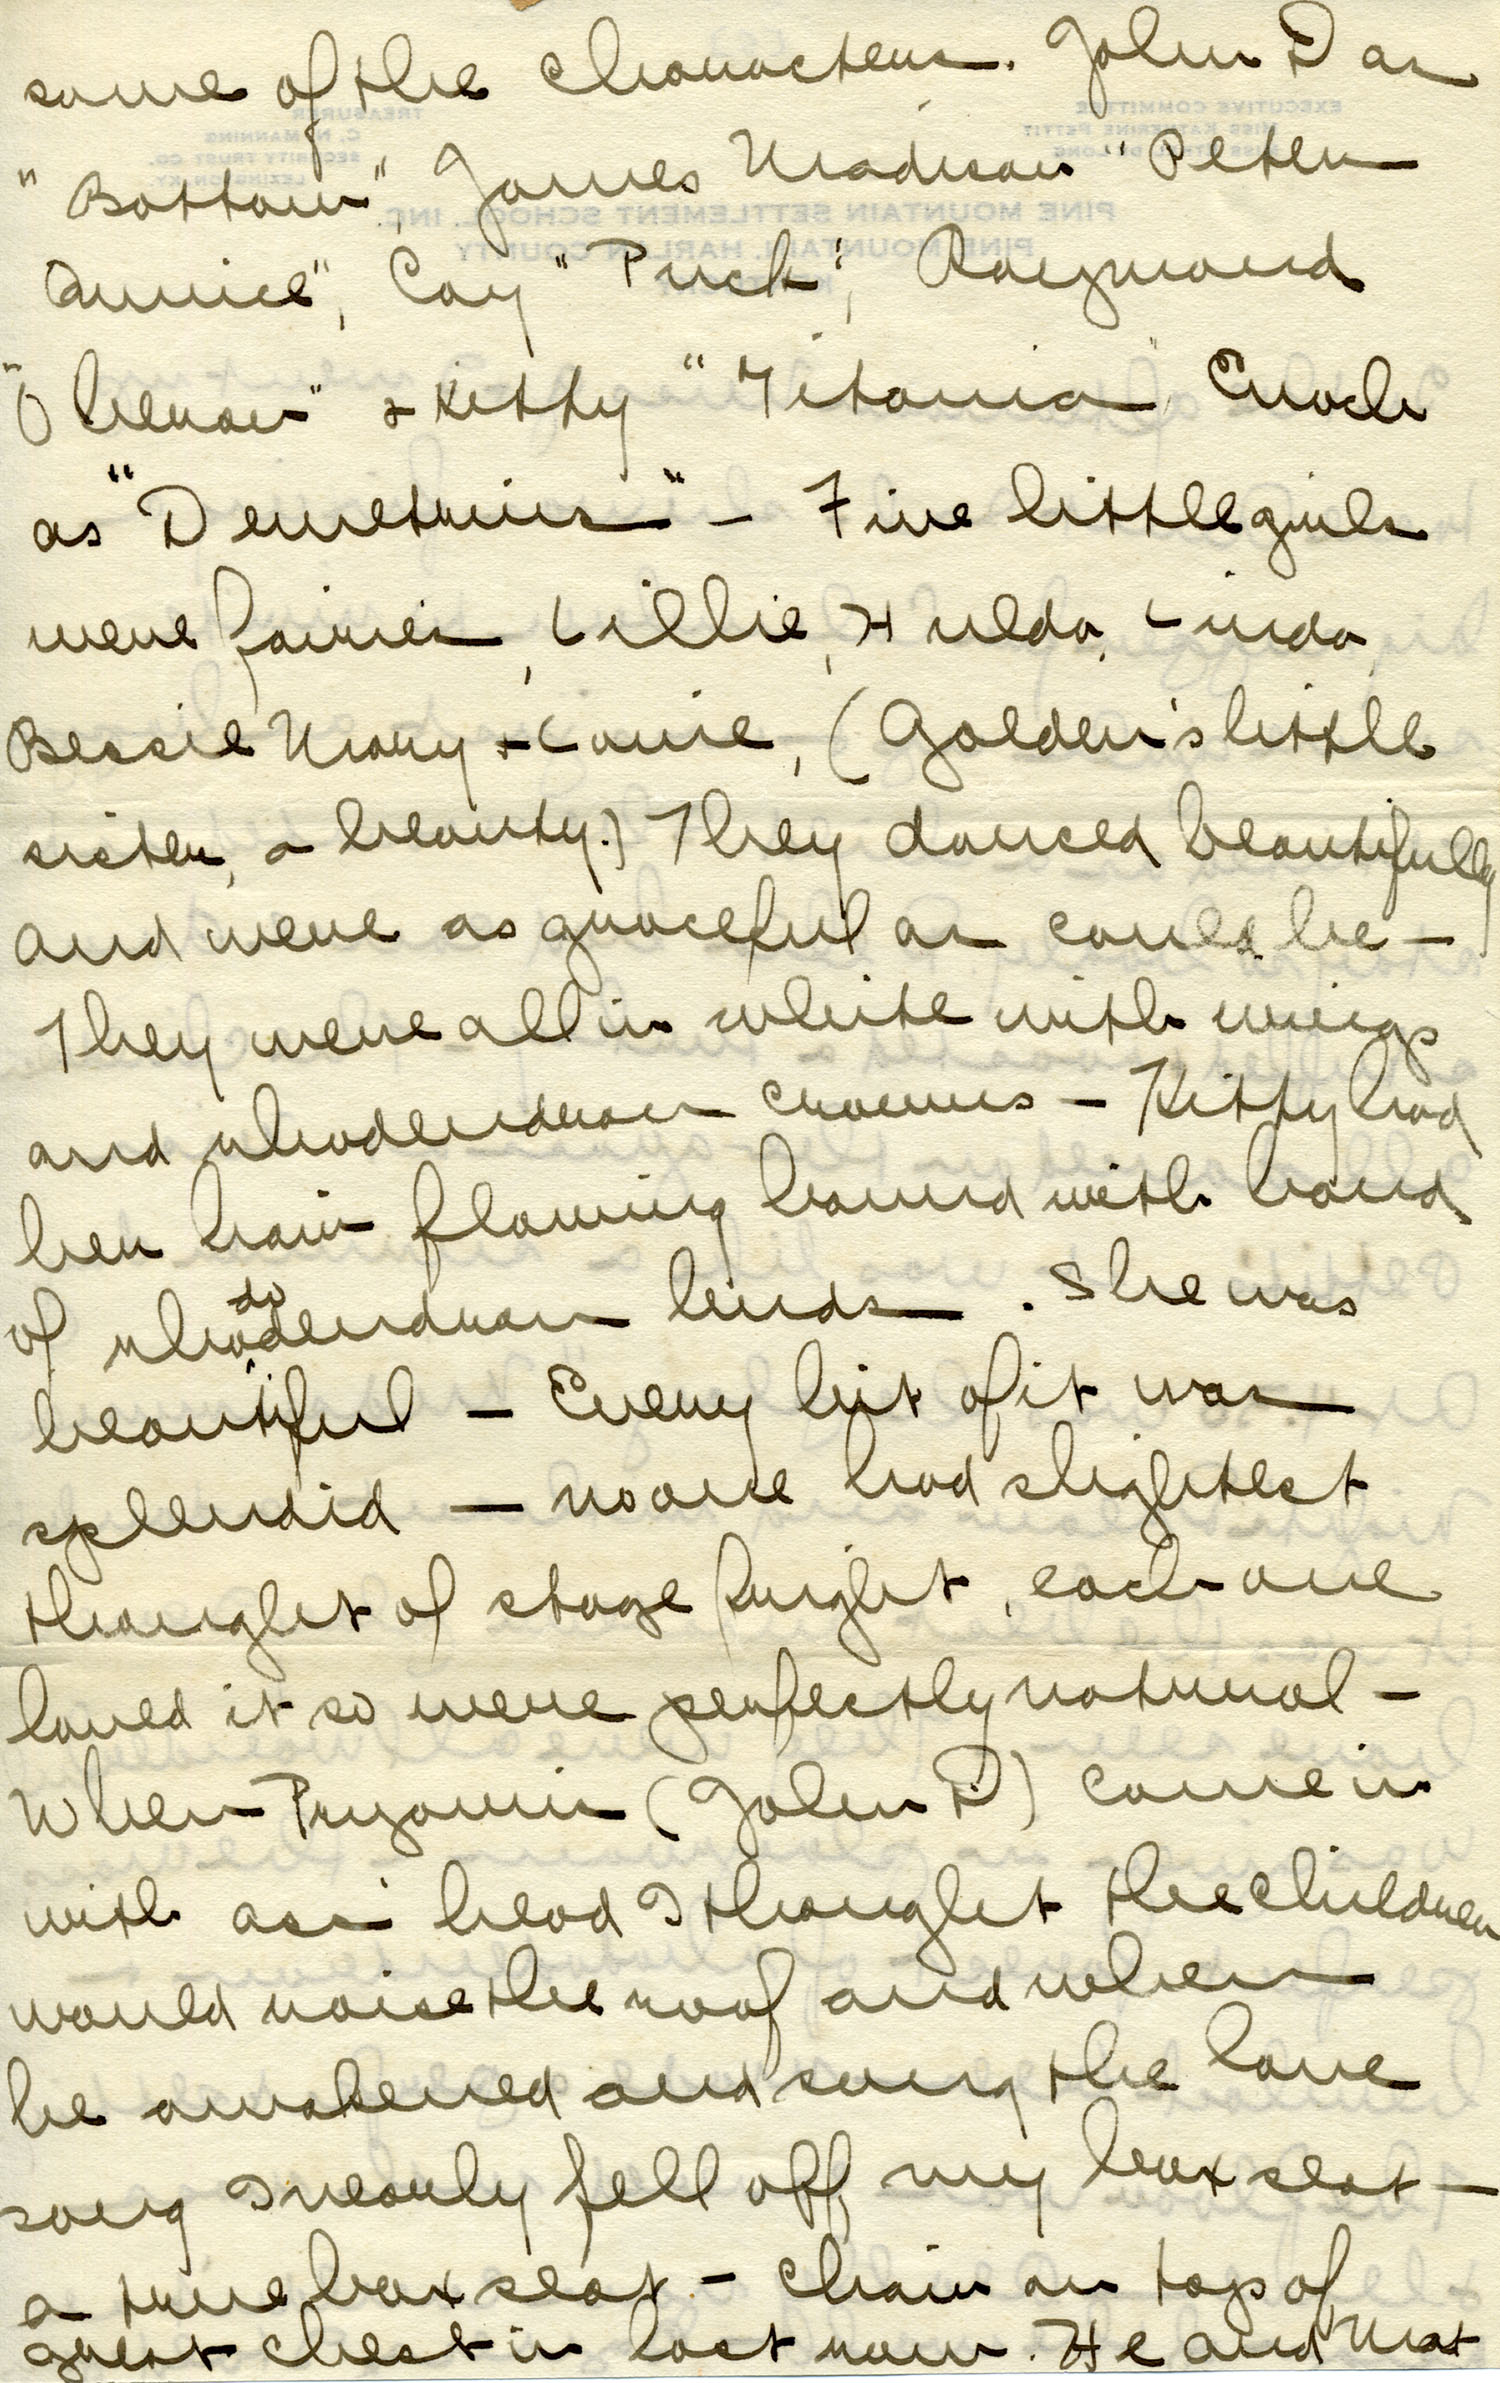 some of the characters. John D as
"Bottom", James Madison "Peter
Quince", Coy "Puck", Raymond
"Oberon" & Kitty "Titania" Enoch
as "Demetrius" - Five little girls
were fairies, Lillie, Hulda, Linda,
Bessie Mary & Lonie, (Golden's little
sister, a beauty.) They danced beautifully
and were as graceful as could be -
They were all in white with wings
and rhodendron crowns - Kitty had
her hair flowing bound with band
of rhododendron buds. She was
beautiful - Every bit of it was
splendid - no one had slightest
thought of stage fright, each one
loved it so were perfectly natural -
When Pryamis (John D) came in
with ass' head I thought the children
would raise the roof and when
he awakened and sung the love
song I nearly fell off my box seat -
a true box seat - chair on top of
great chest in last row. He and Mat
EXECUTIVE COMMITTEE
MISS KATHERINE PETTIT
TREASURER
C. N. MANNING
SECURITY TRUST CO.
LEXINGTON, KY.
PINE MOUNTAIN SETTLEMENT SCHOOL, INC.
PINE MOUNTAIN, HARLAN COUNTY